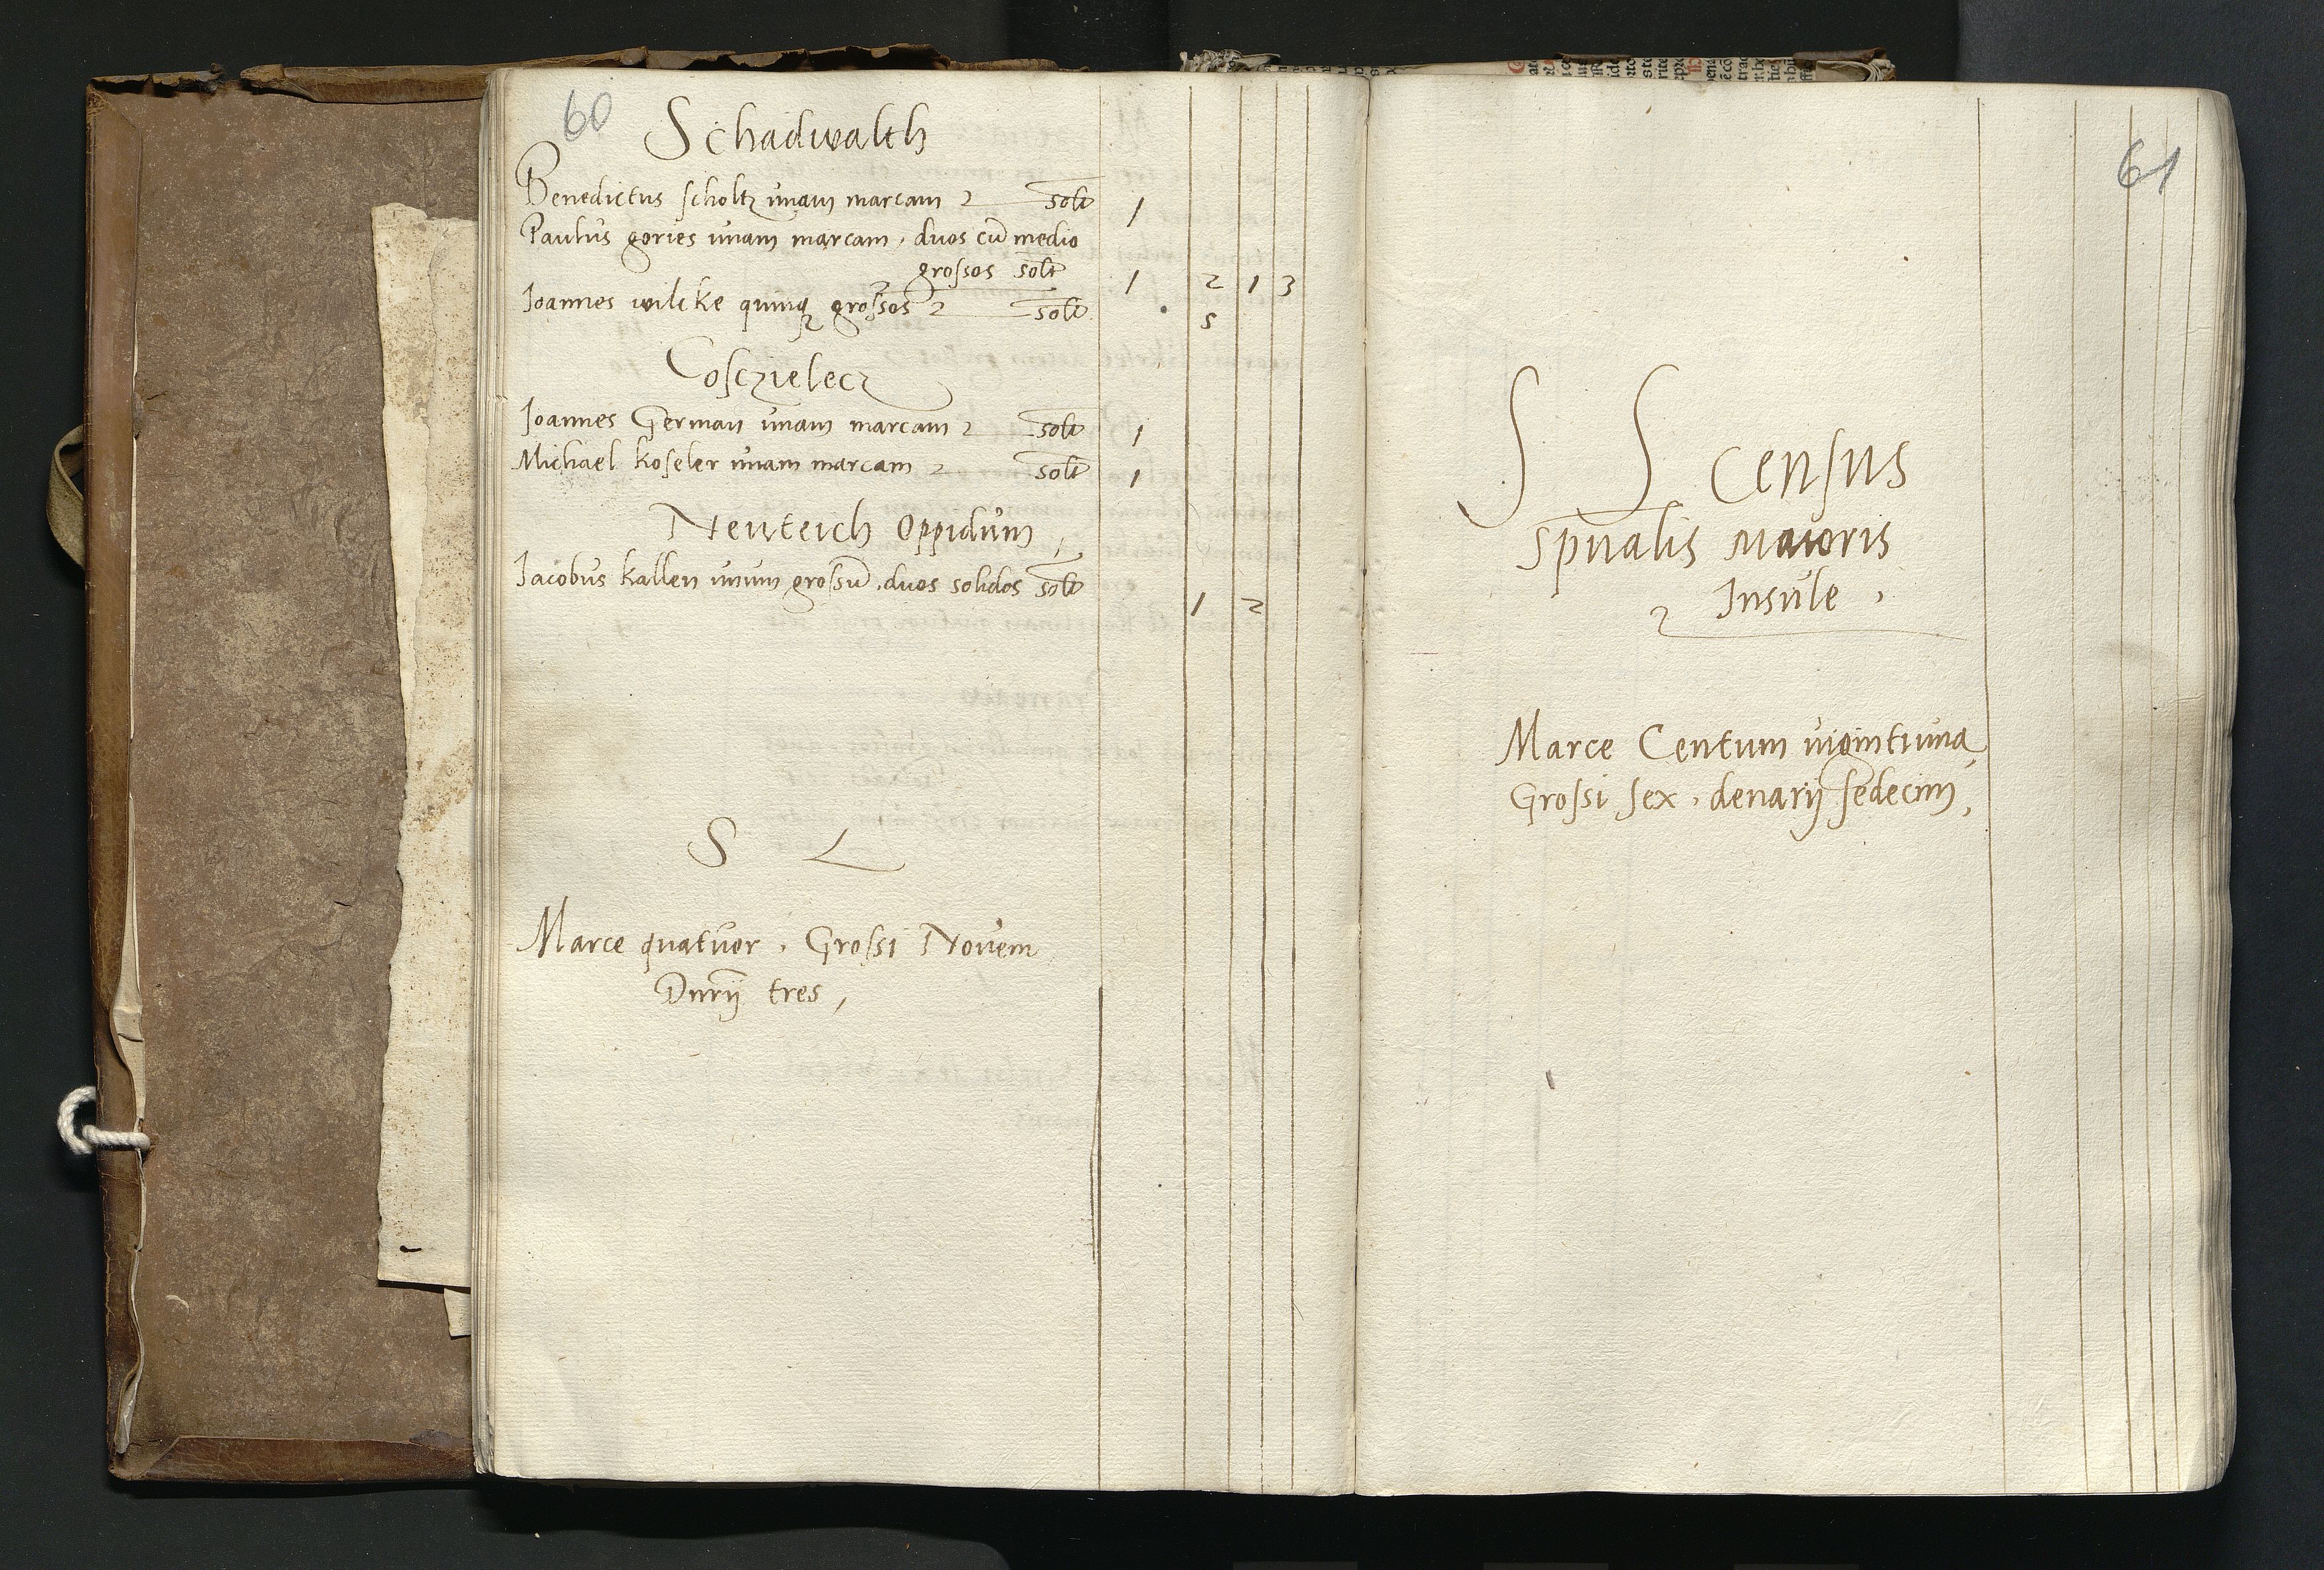 60
Schadwalth
Benedictus scholtz unam marcam solt 1
Paulus gories unam marcam, duos cu medio
grossos solt 1 2 1 3
Joannes wilcke quinq grossos solt 5
Cosczielecz
Joannes German unam marcam solt 1
Michael Koseler unam marcam solt 1
Neuteich Oppidum
Jacobus Kallen unum grossu, duos solidos solt
1 2
S L
Marce quatuor, Grossi Novem
Dnrij tres,
61
S S Census
spualis Maioris
Insule,
Marce Centum vigintiuna
Grossi sex, denarij sedecim,